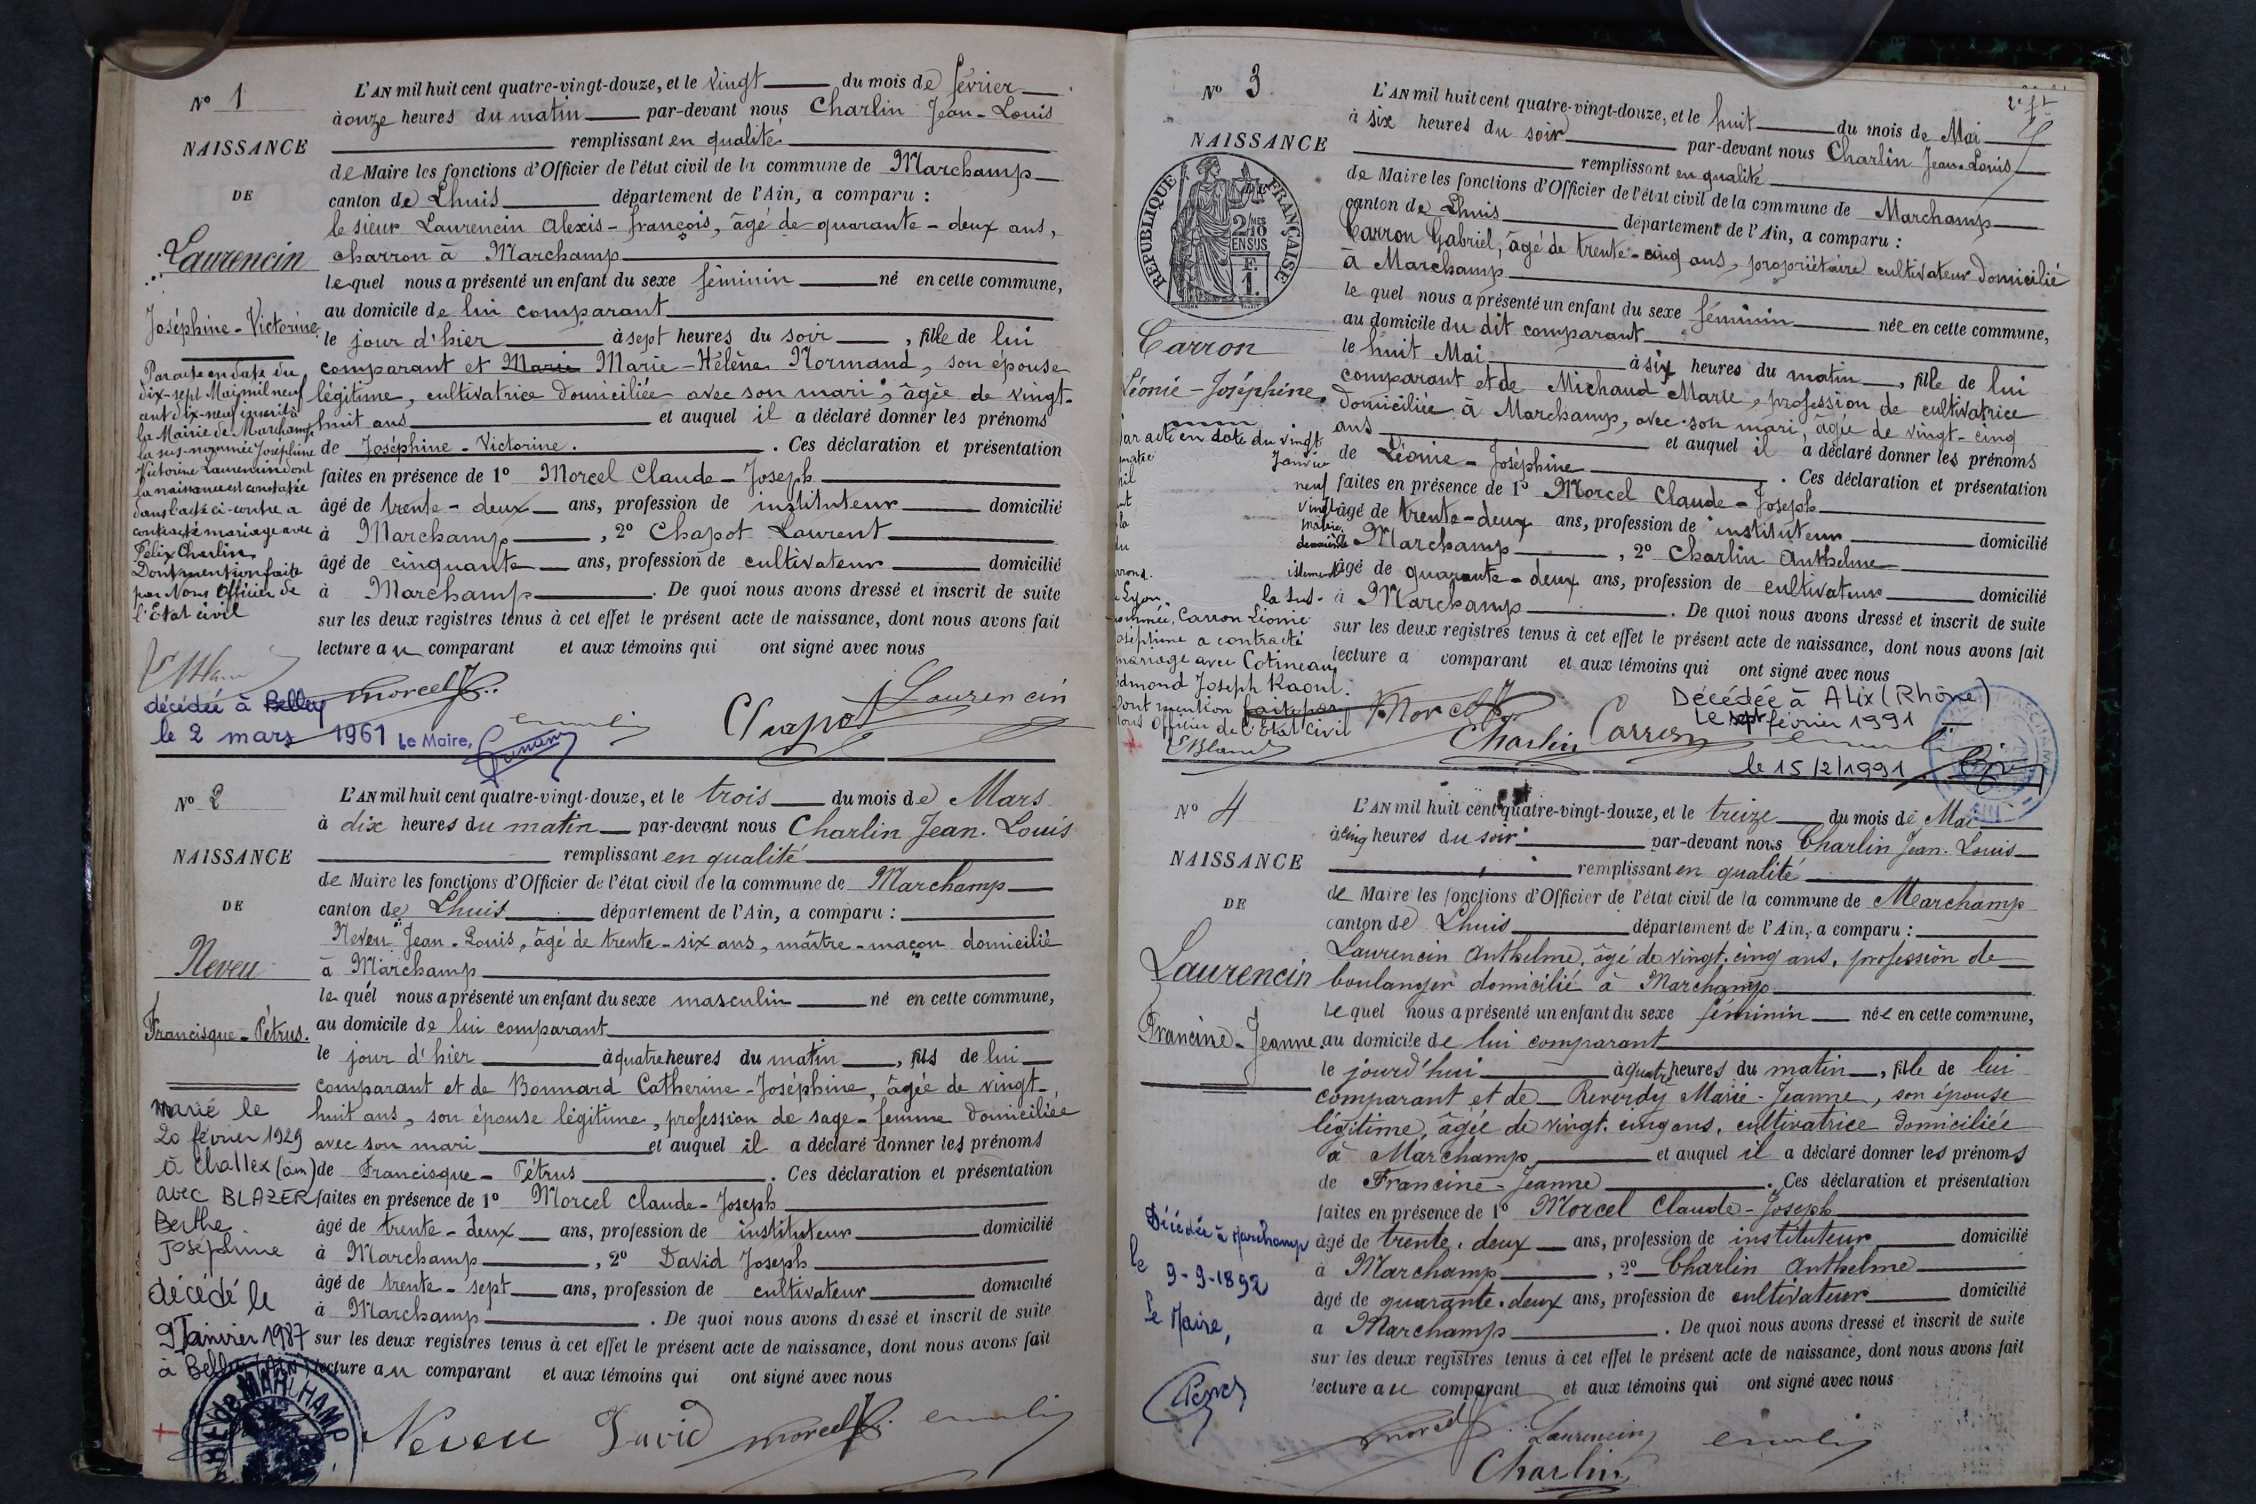 Nº 1
NAISSANCE
DE
Laurencin
Joséphine-Victorine
Par acte en date du
dix-sept Mai mil neuf
cent dix-neuf inscrit à
la Mairie de Marchamp
la sus-nommée Joséphine
Victorine Laurencin dont
la naissance est constatée
dans l'acte ci-contre a
contracté mariage avec
Félix Charlin,
Dont mention faite
par Nous Officier de
l'Etat civil
décédée à Belley
le 2 mars 1961 Le Maire,
L'AN mil huit cent quatre-vingt-douze, et le vingt du mois de février
à onze heures du matin par-devant nous Charlin Jean-Louis
remplissant en qualité
de Maire les fonctions d'Officier de l'état civil de la commune de Marchamp
canton de Lhuis département de l'Ain, a comparu :
le sieur Laurencin Alexis-françois, âgé de quarante-deux ans,
charron à Marchamp
lequel nous a présenté un enfant du sexe féminin né en cette commune,
au domicile de lui comparant
le jour d'hier à sept heures du soir, fille de lui
comparant et Marie Marie-Hélène Normand, son épouse
légitime, cultivatrice domiciliée avec son mari, âgée de vingt-
huit ans et auquel il a déclaré donner les prénoms
de Joséphine-Victorine. Ces déclaration et présentation
faites en présence de 1º Morcel Claude-Joseph
âgé de trente-deux ans, profession de instituteur domicilié
à Marchamp, 2º Chapot Laurent
âgé de cinquante ans, profession de cultivateur domicilié
à Marchamp. De quoi nous avons dressé et inscrit de suite
sur les deux registres tenus à cet effet le présent acte de naissance, dont nous avons fait
lecture au comparant et aux témoins qui ont signé avec nous
morcel Chapot Laurencin
Nº 2
NAISSANCE
DE
Neveu
Francisque-Pétrus.
marié le
20 février 1929
à Challex (ain)
avec BLAZER
Berthe
Joséphine
décédé le
9 Janvier 1987
à Belley (AIN)
L'AN mil huit cent quatre-vingt-douze, et le trois du mois de Mars
à dix heures du matin par-devant nous Charlin Jean-Louis
remplissant en qualité
de Maire les fonctions d'Officier de l'état civil de la commune de Marchamp
canton de Lhuis département de l'Ain, a comparu :
Neveu Jean-Louis, âgé de trente-six ans, maître-maçon domicilié
à Marchamp
lequel nous a présenté un enfant du sexe masculin né en cette commune,
au domicile de lui comparant
le jour d'hier à quatre heures du matin, fils de lui
comparant et de Bonnard Catherine-Joséphine, âgée de vingt-
huit ans, son épouse légitime, profession de sage-femme domiciliée
avec son mari et auquel il a déclaré donner les prénoms
de Francisque-Pétrus. Ces déclaration et présentation
faites en présence de 1º Morcel claude-Joseph
âgé de trente-deux ans, profession de instituteur domicilié
à Marchamp, 2º David Joseph
âgé de trente-sept ans, profession de cultivateur domicilié
à Marchamp. De quoi nous avons dressé et inscrit de suite
sur les deux registres tenus à cet effet le présent acte de naissance, dont nous avons fait
lecture au comparant et aux témoins qui ont signé avec nous
Neveu David morcel
MARCHAMP
Nº 3
NAISSANCE
DE
RÉPUBLIQUE FRANÇAISE
2/10mes
EN SUS
F.
1.
Carron
Léonie-Joséphine.
Par acte en date du vingt
Janvier
neuf
vingt
mairie
la sus-
Carron Léonie
Joséphine a contracté
mariage avec Cotineau
Edmond Joseph Raoul.
Dont mention faite par
Nous Officier de l'Etat Civil
L'AN mil huit cent quatre-vingt-douze, et le huit du mois de Mai
à six heures du soir par-devant nous Charlin Jean-Louis
remplissant en qualité
de Maire les fonctions d'Officier de l'état civil de la commune de Marchamp
canton de Lhuis département de l'Ain, a comparu :
Carron Gabriel, âgé de trente-cinq ans, propriétaire cultivateur domicilié
à Marchamp
lequel nous a présenté un enfant du sexe féminin née en cette commune,
au domicile du dit comparant
le huit Mai à six heures du matin, fille de lui
comparant et de Michaud Marie, profession de cultivatrice
domiciliée à Marchamp, avec son mari, âgée de vingt-cinq
ans et auquel il a déclaré donner les prénoms
de Léonie-Joséphine. Ces déclaration et présentation
faites en présence de 1º Morcel Claude-Joseph
âgé de trente-deux ans, profession de instituteur domicilié
à Marchamp, 2º Charlin Anthelme
âgé de quarante-deux ans, profession de cultivateur domicilié
à Marchamp. De quoi nous avons dressé et inscrit de suite
sur les deux registres tenus à cet effet le présent acte de naissance, dont nous avons fait
lecture a comparant et aux témoins qui ont signé avec nous
Décédée à Alix (Rhône)
Le sept février 1991
le 15/2/1991
Morcel Charlin Carron
Nº 4
NAISSANCE
DE
Laurencin
Francine-Jeanne.
Décédée à Marchamp
le
9-9-1892
Le Maire,
L'AN mil huit cent quatre-vingt-douze, et le treize du mois de Mai
à cinq heures du soir par-devant nous Charlin Jean-Louis
remplissant en qualité
de Maire les fonctions d'Officier de l'état civil de la commune de Marchamp
canton de Lhuis département de l'Ain, a comparu :
Laurencin Anthelme, âgé de vingt-cinq ans, profession de
boulanger domicilié à Marchamp
lequel nous a présenté un enfant du sexe féminin née en cette commune,
au domicile de lui comparant
le jourd'hui à quatre heures du matin, fille de lui
comparant et de Reverdy Marie-Jeanne, son épouse
légitime, âgée de vingt-cinq ans, cultivatrice domiciliée
à Marchamp et auquel il a déclaré donner les prénoms
de Francine-Jeanne. Ces déclaration et présentation
faites en présence de 1º Morcel Claude-Joseph
âgé de trente-deux ans, profession de instituteur domicilié
à Marchamp, 2º Charlin Anthelme
âgé de quarante-deux ans, profession de cultivateur domicilié
a Marchamp. De quoi nous avons dressé et inscrit de suite
sur les deux registres tenus à cet effet le présent acte de naissance, dont nous avons fait
lecture au comparant et aux témoins qui ont signé avec nous
morcel Laurencin
Charlin